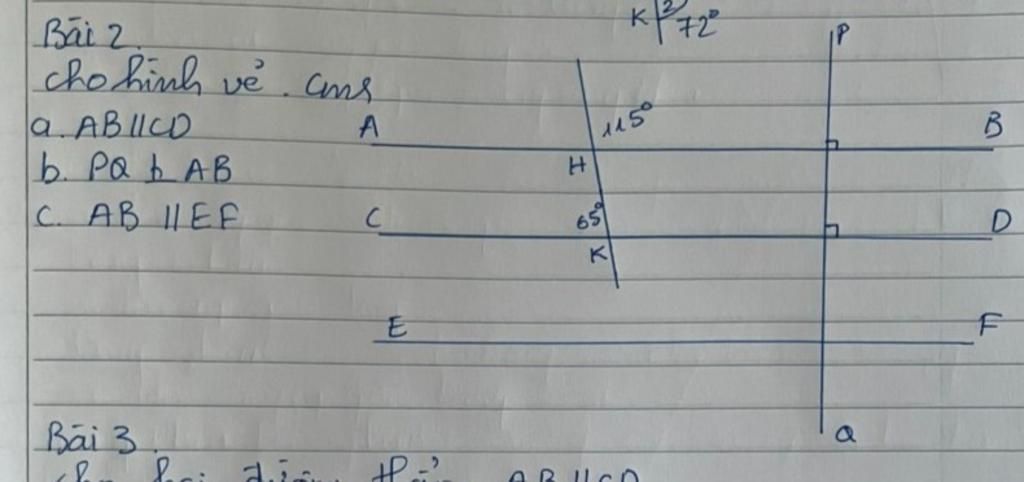 K 2 72°
Bài 2.
cho hình vẽ. cmr
a. AB // CD
b. PQ ⊥ AB
c. AB // EF
P
A 115° B
H
C 65° D
K
E F
Q
Bài 3.
AB // CD